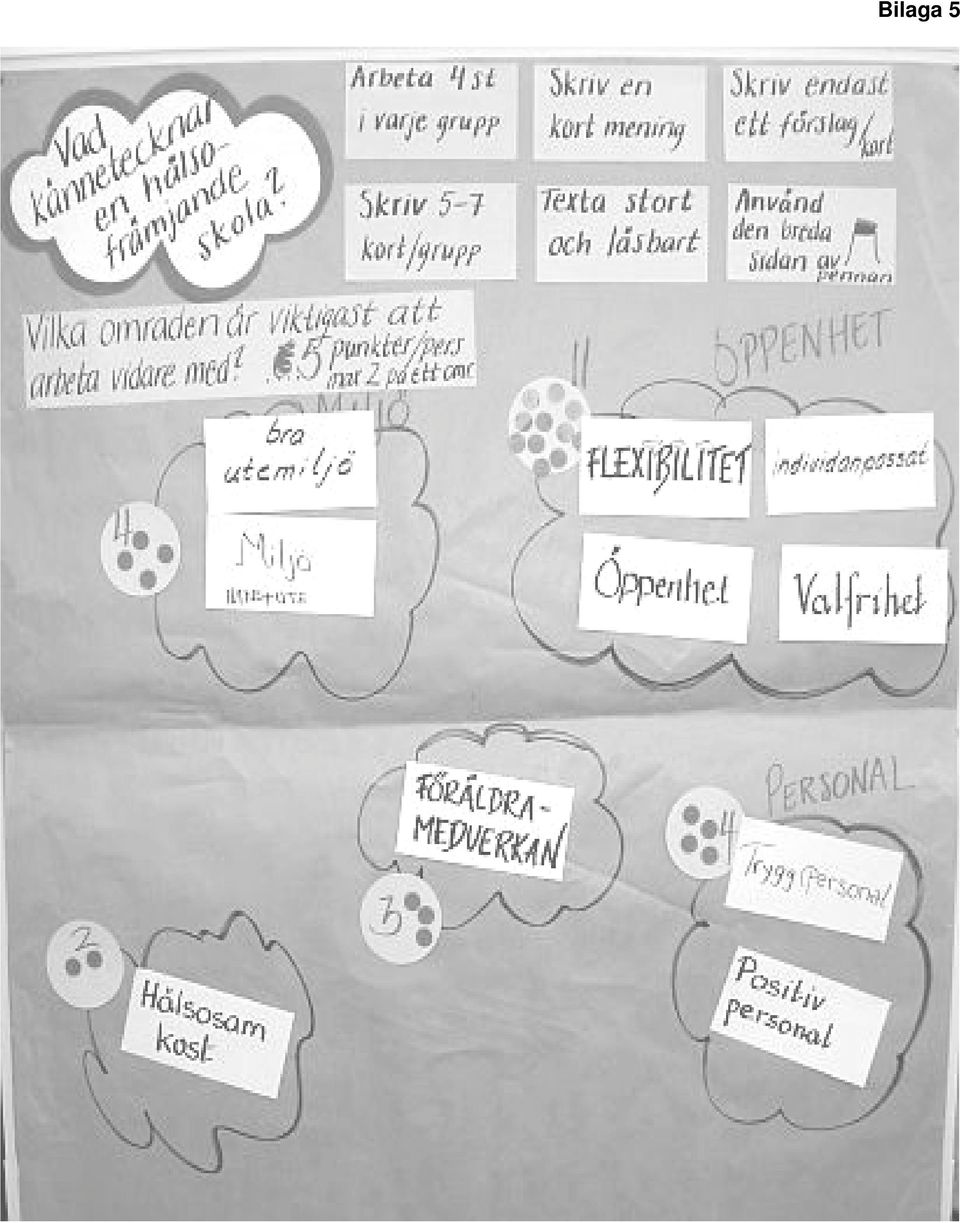 Bilaga 5
Vad
kännetecknar
en hälso-
främjande
skola?
Arbeta 4 st
i varje grupp
Skriv en
kort mening
Skriv endast
ett förslag/
kort
Skriv 5-7
kort/grupp
Texta stort
och läsbart
Använd
den breda
sidan av
pennan
Vilka områden är viktigast att
arbeta vidare med?
5 punkter/pers
max 2 på ett omr
MILJÖ
bra
utemiljö
4
Miljö
INNE+UTE
11
ÖPPENHET
FLEXIBILITET
individanpassat
Öppenhet
Valfrihet
FÖRÄLDRA-
MEDVERKAN
3
PERSONAL
4
Trygg personal
Positiv
personal
2
Hälsosam
kost